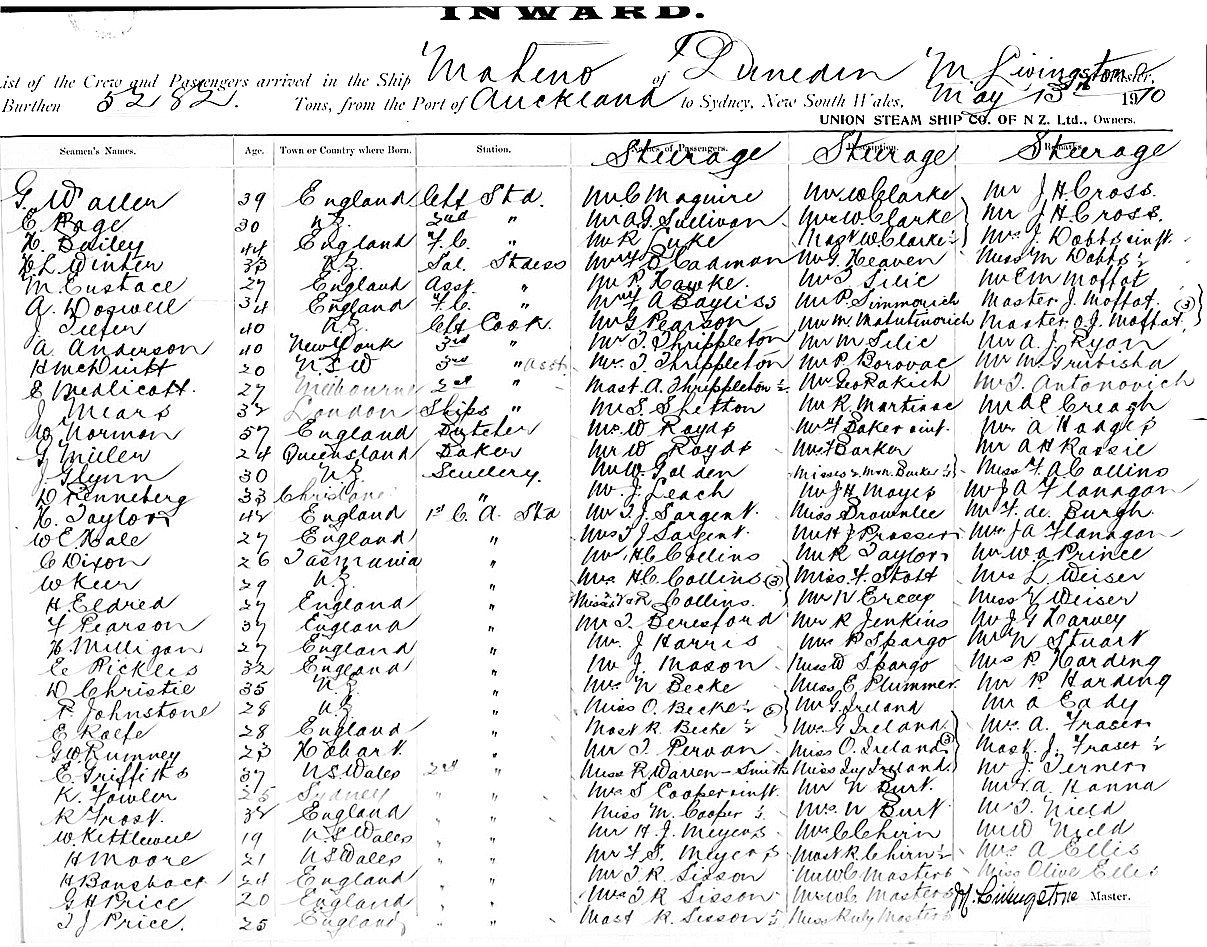 INWARD.
List of the Crew and Passengers arrived in the Ship Maheno of Dunedin M. Livingstone Master,
Burthen 5282. Tons, from the Port of Auckland to Sydney, New South Wales, May 13th 1910
UNION STEAM SHIP CO. OF N Z. Ltd., Owners.
Seamen's Names. Age. Town or Country where Born. Station. Names of Passengers. Description. Remarks.
Steerage Steerage Steerage
39 England Std. Mr C Maguire Mr W Clarke Mr J H Cross.
E Page 30 N.Z. 2nd " Mr A G Sullivan Mrs W Clarke Mr J H Cross.
H. Bailey 44 England F.C. " Mr R Mast W Clarke ½ Mrs J. Dobbs & inft.
H L Winter 33 N.Z. Sal. Stdess Cadman Mr G Heaven Miss M Dobbs ½
M. Eustace 27 England Asst. " Mr P. Hawke. Mr T Silic Mr C M Moffat
A. Dogwell 34 England F.C. " A Bayliss Mr P. Simmovich Master J. Moffat. (3)
J. 40 N.Z. Cook. Mr G Pearson Mr M. Matutinovich Master J. Moffat
A. Anderson 40 New York 3rd " Mr T Thrippleton Mr M Silic Mr A. J. Ryan
20 N S W 3rd " Asst Mrs T Thrippleton Mr P. Borovac Mr M. Grubisha
E Medlicott. 27 Melbourne 2nd " Mast A. Thrippleton ½ Mr Geo Rakich Mr T. Antonovich
J Mears 32 London Ships " Mr S. Shetton Mr R. Martinac Mr A E Creagh
W Norman 57 England Butcher Mr W Royds Mrs F Baker & inft. Mrs A Hodges
G Miller 24 Queensland Baker Mr W Royds Mr F Barker Mr A H Rassie
J Glynn 30 N.Z. Scullery. Mr W. Golden Misses & Mon. Barker ½ Miss F. A Collins
D Renneberg 33 " Mr J. Leach Mr J H Mayes Mr J A Flanagan
H. Taylor 42 England 1st C. A. Std Mr T J. Sargent. Miss Brownlee Mr F. de. Burgh.
W E Hale 27 England " Mrs T J Sargent. Mr H J Prosser Mrs J A Flanagan
C Dixon 26 Tasmania " Mr H C Collins Mr R Taylor Mr W A Prince
W Keer 29 N.Z. " Mrs H C Collins (3) Miss F. Stott Mrs L Weiser
H Eldred 27 England " Collins. Mr N Ercey Miss Weiser
F Pearson 37 England " Mr T. Beresford Mr R Jenkins Mr J G Harvey
H Milligan 27 England " Mr. J Harris Mrs P Spargo Mr N Stuart
E Pickles 32 England " Mr J. Mason Miss W Spargo Miss P Harding
D Christie 35 N.Z. " Mrs N Becke Miss E Plummer. Mr P. Harding
P. Johnstone 28 N.Z. " Miss O. Becke ½ Mr G Ireland Mr A Eady
E Rolfe 28 England " Mast R. Becke ½ Mrs G Ireland Mrs A. Fraser
G W Rumney 23 Hobart. " Mr T. Pervan Miss O. Ireland (3) Mast. J. Fraser ½
E Griffiths 37 N S Wales 2nd " Miss R Warren-Smith Miss Ivy Ireland. Mr J. Terner
K. Fowler 25 Sydney " Mrs S Cooper & inft. Mr N Burt. Mr A. Hanna
R Frost. 32 England " Miss M. Cooper ½ Mrs N Burt Mr T Nield
W. Kettlewell 19 N S Wales " Mr H. J. Meyers Mrs C Chirn Mr W Nield
H Moore 21 N S Wales " Mr F. S. Meyers Mast R. Chirn ½ Mrs A Ellis
H Bansback 24 England " Mr T R. Sisson Mr W C Masters Miss Olive Ellis
G H Price 20 England " Mrs T R Sisson Mrs W C Masters M. Livingstone Master.
T J Price. 25 England " Mast R. Sisson ½ Miss Ruby Masters